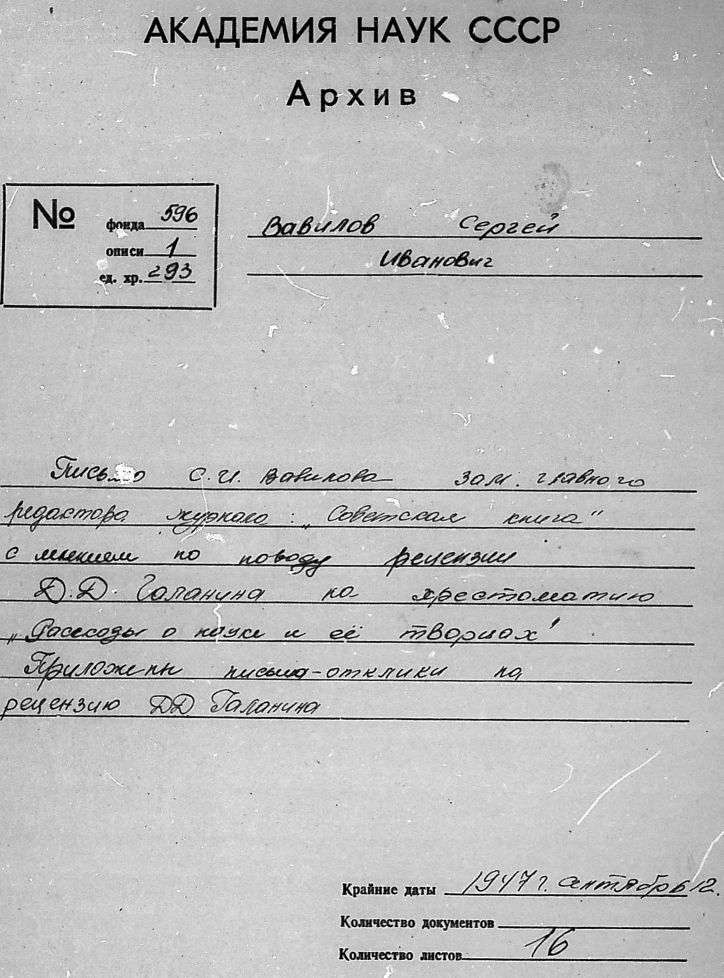 АКАДЕМИЯ НАУК СССР
Архив
№
фонда 596
описи 1
ед. хр. 293
Вавилов Сергей
Иванович
Письмо С.И. Вавилова зам. главного
редактора журнала: „Советская книга"
с мнением по поводу рецензии
Д.Д. Галанина на хрестоматию
„Рассказы о науке и её творцах"
Приложены письма-отклики на
рецензию Д.Д. Галанина
Крайние даты 1947 г. сентябрь 12.
Количество документов
Количество листов 16